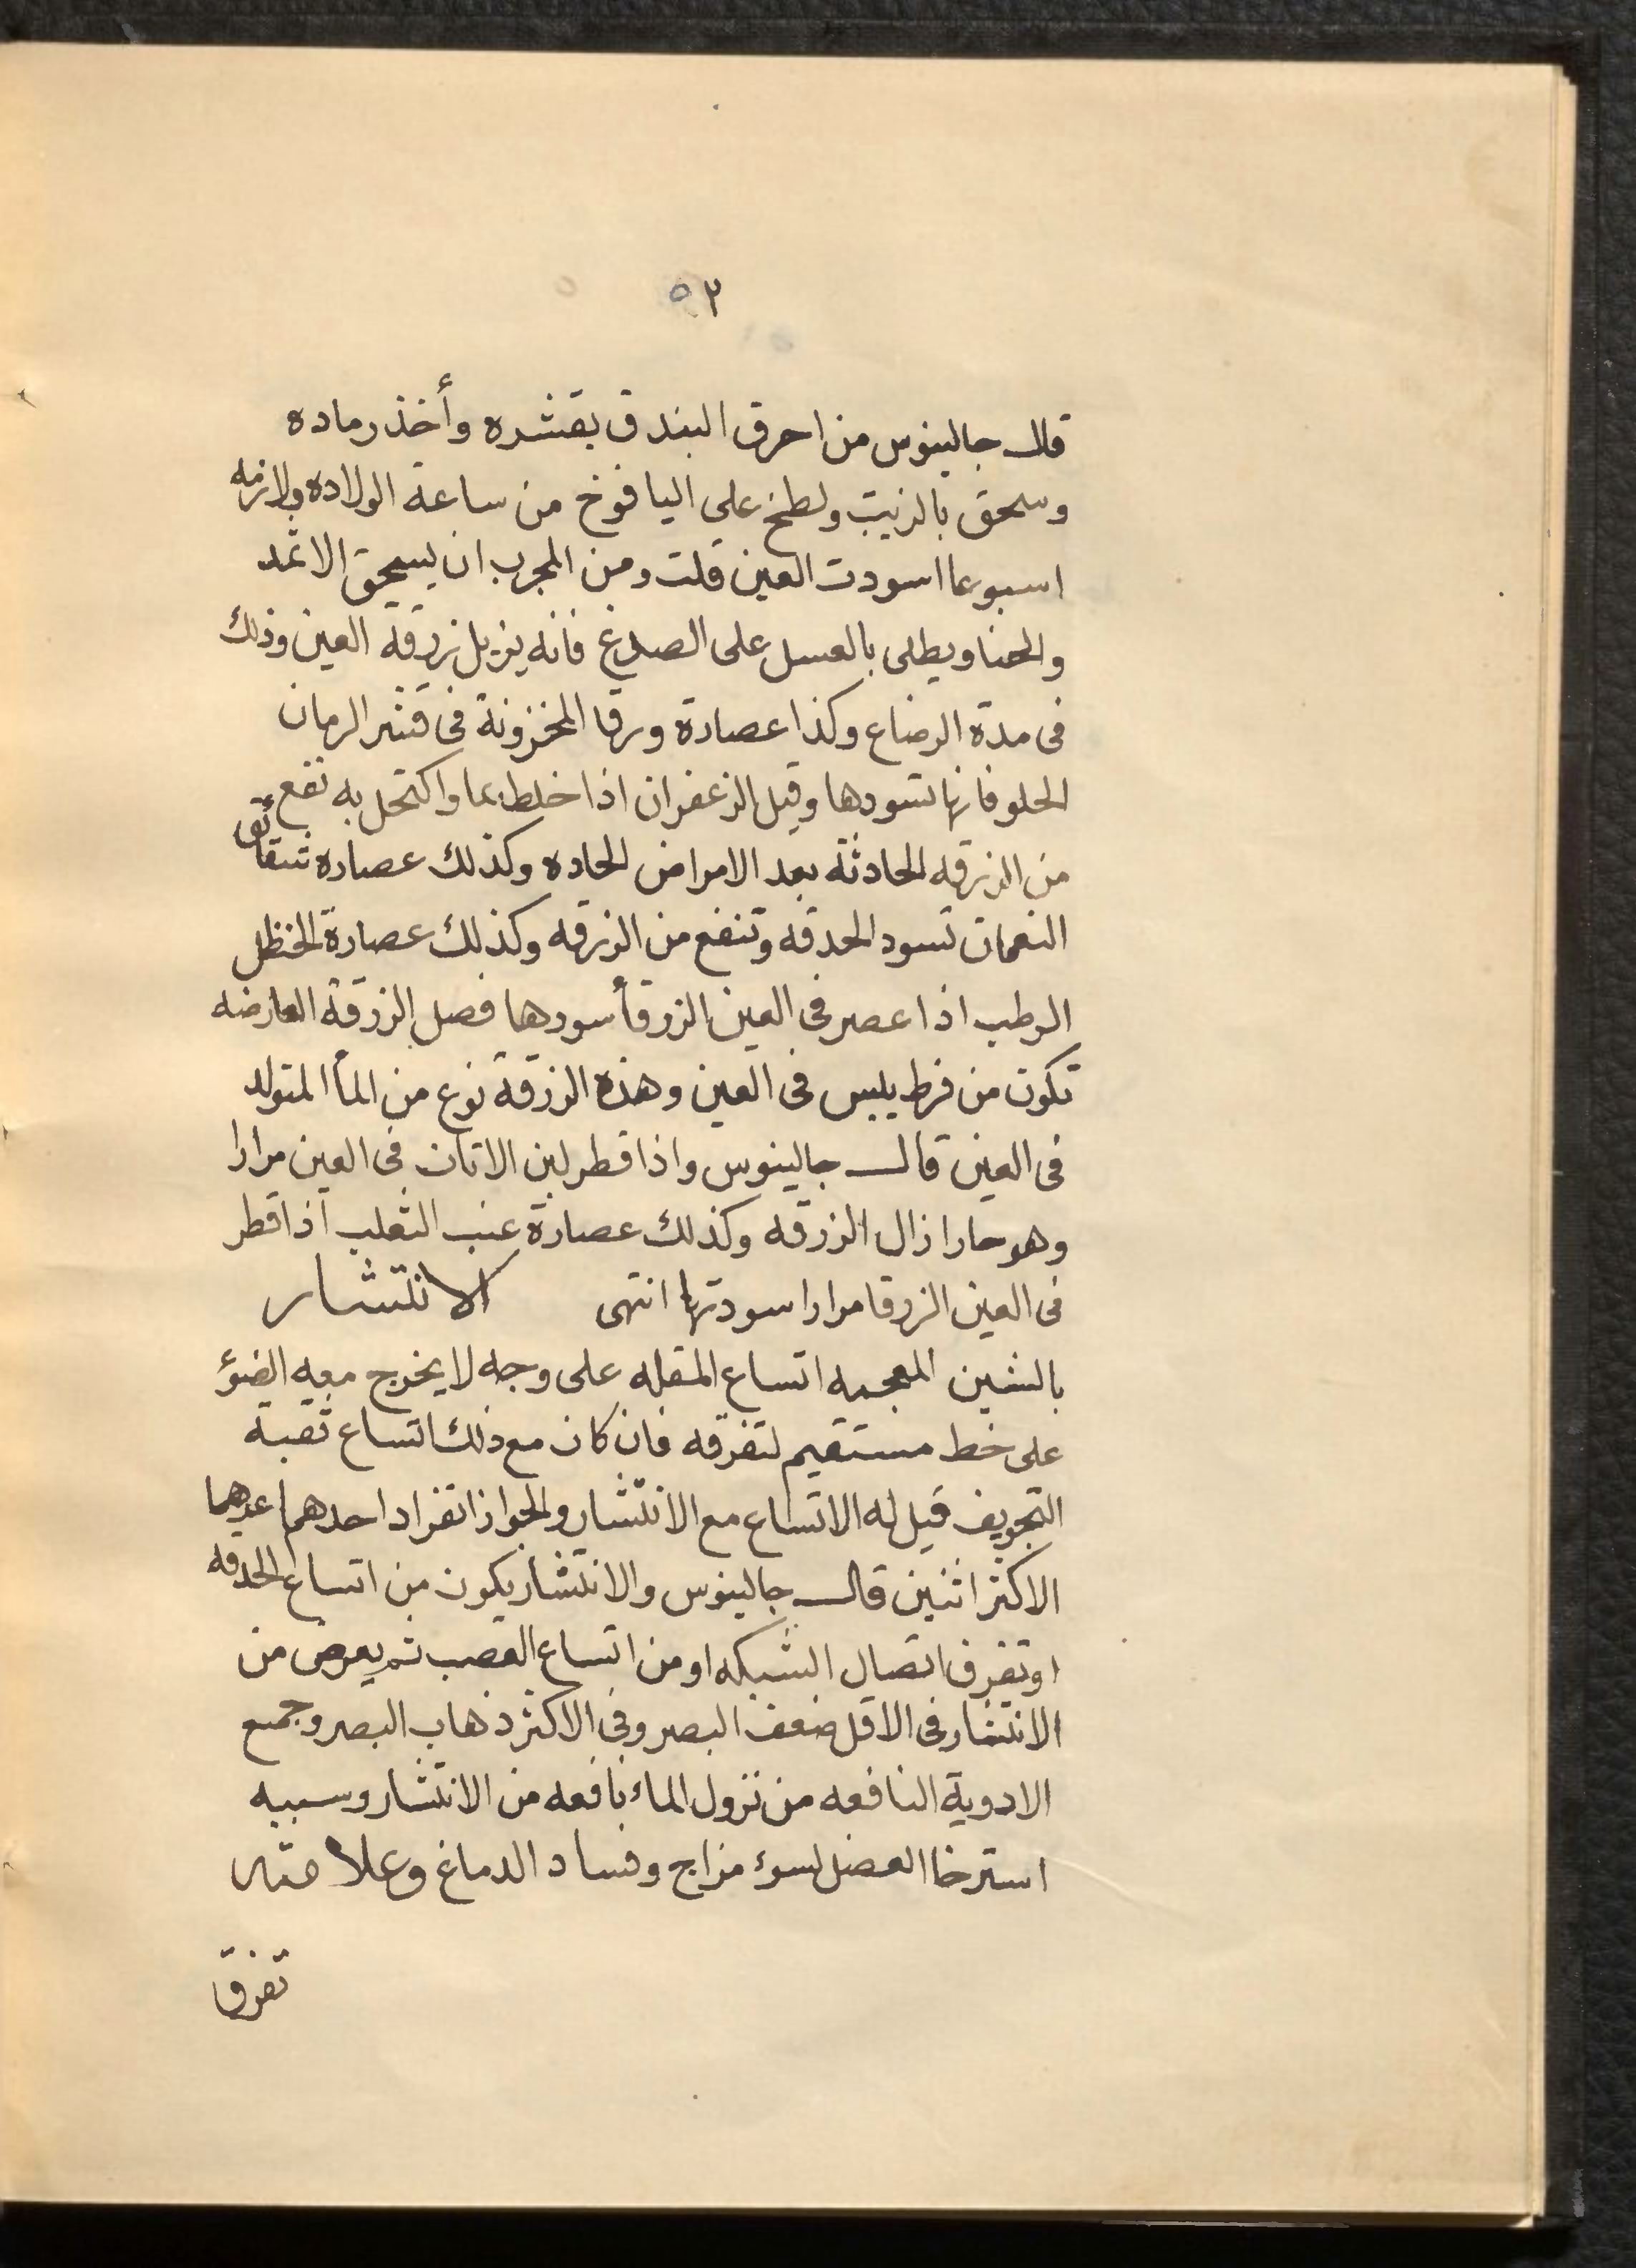 ٥٢
قال جالينوس من احرق البندق بقشره وأخذ رماده
وسحق بالزيت ولطخ على اليافوخ من ساعة الولاده ولازمه
اسبوعا اسودت العين قلت ومن المجرب ان يسحق الاثمد
والحنا ويطلى بالعسل على الصدغ فانه يزيل زرقة العين وذلك
فى مدة الرضاع وكذا عصارة ورقا المخزونة فى قشر الرمان
الحلو فانها تسودها وقيل الزعفران اذا خلط بما واكتحل به نفع
من الزرقه الحادثة بعد الامراض الحاده وكذلك عصاره شقائق
النعمان تسود الحدقه وتنفع من الزرقه وكذلك عصارة الحنظل
الرطب اذا عصر فى العين الزرقأ سودها فصل الزرقة العارضه
تكون من فرط يبس فى العين وهذه الزرقة نوع من المأ المتولد
فى العين قال جالينوس واذا قطر لبن الاتان فى العين مرارا
وهو حارا زال الزرقه وكذلك عصارة عنب الثعلب اذا قطر
فى العين الزرقا مرارا سودتها انتهى الانتشار
بالشين المعجمه اتساع المقله على وجه لا يخرج معه الضؤ
على خط مستقيم لتفرقه فان كان مع ذلك اتساع ثقبة
التجويف قيل له الاتساع مع الانتشار ولجواز انفراد احدهما عدهما
الاكثر اثنين قال جالينوس والانتشار يكون من اتساع الحدقه
او تفرق اتصال الشبكه او من اتساع العصب ثم يعرض من
الانتشار فى الاقل ضعف البصر وفى الاكثر ذهاب البصر وجميع
الادوية النافعه من نزول الماء نافعه من الانتشار وسببه
استرخا العضل لسوء مزاج وفساد الدماغ وعلامته
تفرق